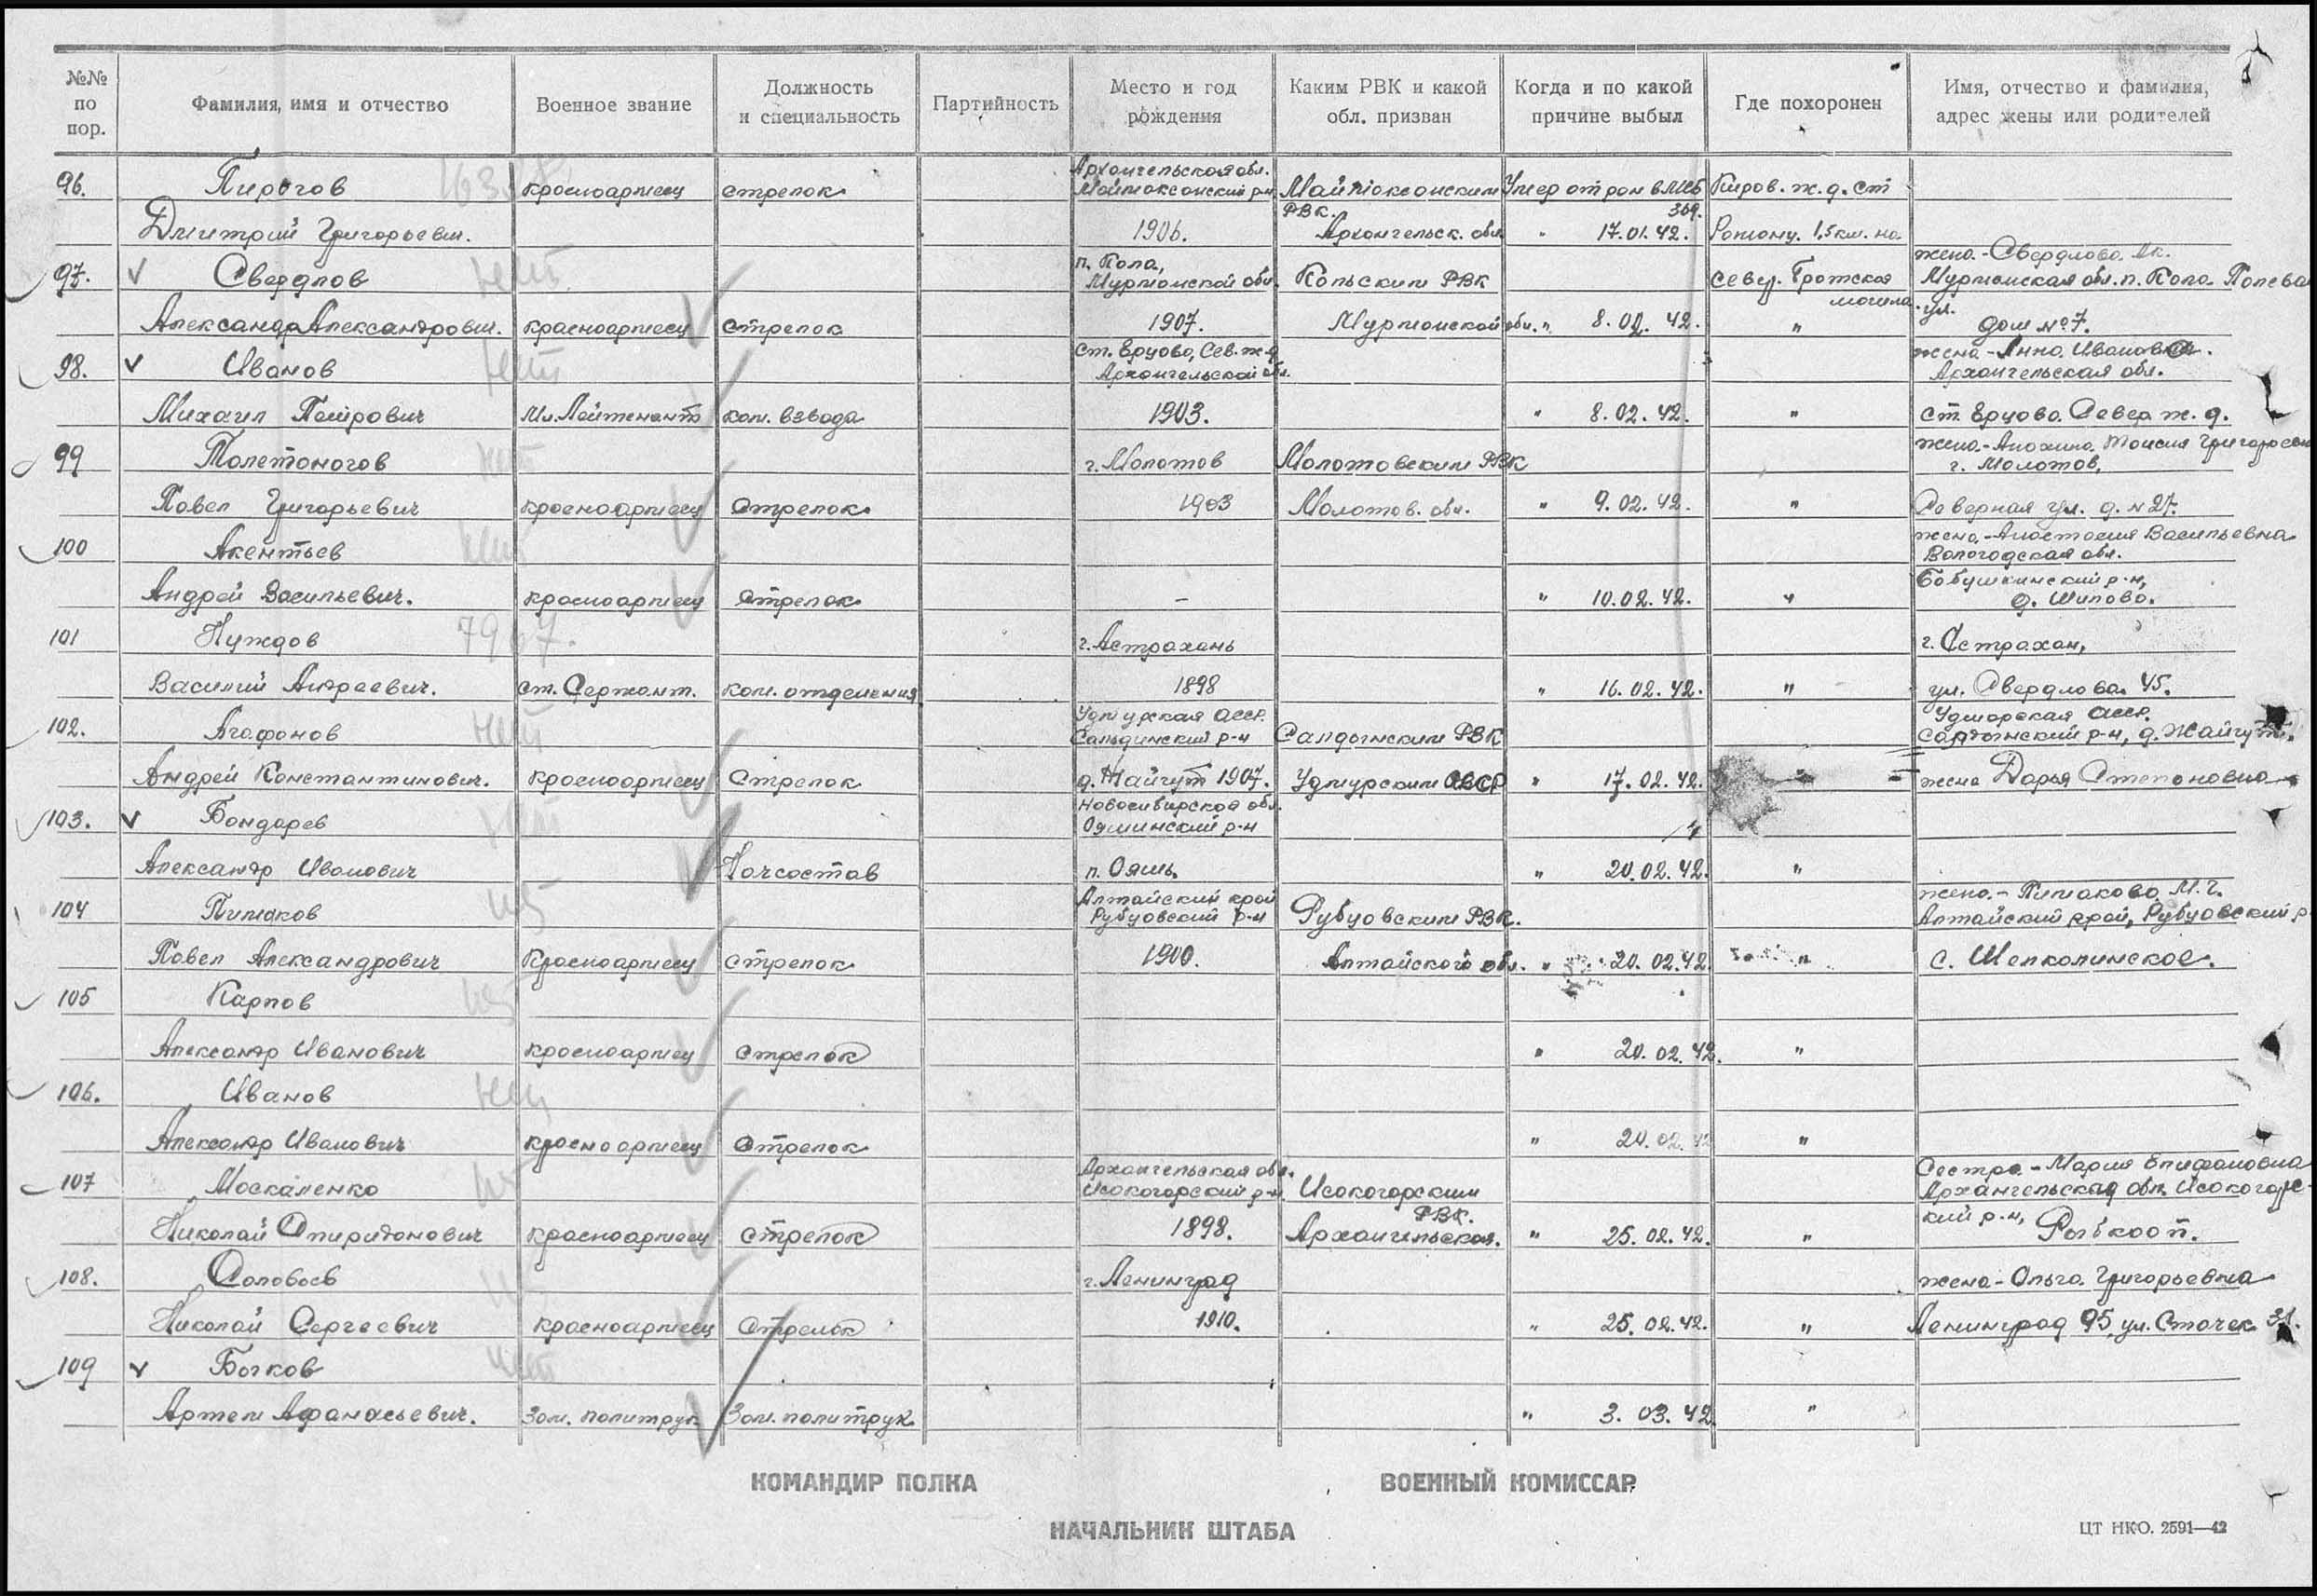 №№ по пор. Фамилия, имя и отчество Военное звание Должность и специальность Партийность Место и год рождения Каким РВК и какой обл. призван Когда и по какой причине выбыл Где похоронен Имя, отчество и фамилия, адрес жены или родителей
96. Пирогов красноармеец стрелок Архангельская обл. Маймаксанский р-н Маймаксанским РВК. Умер от ран в МСБ 369. Киров. ж. д. ст
Дмитрий Григорьевич. 1906. Архангельск. обл. " 17.01.42. 1,5 км. на
97. Свердлов п. Кола, Мурманской обл. Кольским РВК север. Братская могила жена - Свердлова Мурманская обл. п. Кола Полевая ул.
Александр Александрович. красноармеец Стрелок 1907. Мурманской обл. " 8.02.42. " дом № 7.
98. Иванов ст. Ерцово, Сев. ж-д Архангельской обл. жена - Анна Ивановна. Архангельская обл.
Михаил Петрович Мл. Лейтенант ком. взвода 1903. " 8.02.42. " ст. Ерцово. Север ж. д.
99 Толстоногов нет г. Молотов Молотовским РВК жена - Анохина Таисия Григорьевна г. Молотов,
Павел Григорьевич красноармеец Стрелок 1903 Молотов. обл. " 9.02.42. " Северная ул. д. № 27.
100 Акентьев жена - Анастасия Васильевна Вологодская обл.
Андрей Васильевич. красноармеец Стрелок - " 10.02.42. " Бабушкинский р-н, д. Шипово.
101 Нуждов г. Астрахань г. Астрахан,
Василий Андреевич. ст. Сержант. ком. отделения 1898 " 16.02.42. " ул. Свердлова 45.
102. Агафонов нет Удмурская АССР. Сандынский РВК Удмурская АССР.
Андрей Константинович. красноармеец Стрелок д. Жайгут 1907. Удмурским АССР " 17.02.42. " жена Дарья Степановна
103. Бондарев Новосибирская обл. Ояшинский р-н
Александр Иванович Начсостав п. Ояшь. " 20.02.42. "
104 Пимаков Алтайский край Рубцовский р-н Рубцовским РВК. жена - Пимакова М. Г. Алтайский край, Рубцовский р
Павел Александрович Красноармеец стрелок 1900. Алтайского обл. " 20.02.42 " с.
105 Карпов
Александр Иванович красноармеец Стрелок " 20.02.42. "
106. Иванов
Александр Иванович красноармеец Стрелок " 20.02.42 "
107 Москаленко Архангельская обл. Исакогорский р-н Исакогорским РВК. Сестра - Мария Епифановна Архангельская обл. Исакогорс-
Николай Спиридонович красноармеец стрелок 1898. Архангельская. " 25.02.42. " кий р-н, Рыбкооп.
108. Соловьев г. Ленинград жена - Ольга Григорьевна
Николай Сергеевич красноармеец Стрелок 1910. " 25.02.42. " Ленинград 95, ул. Стачек 31.
109 Бочков
Артем Афанасьевич. Зам. политрук Зам. политрук " 3.03.42. "
КОМАНДИР ПОЛКА ВОЕННЫЙ КОМИССАР
НАЧАЛЬНИК ШТАБА
ЦТ НКО. 2591—42